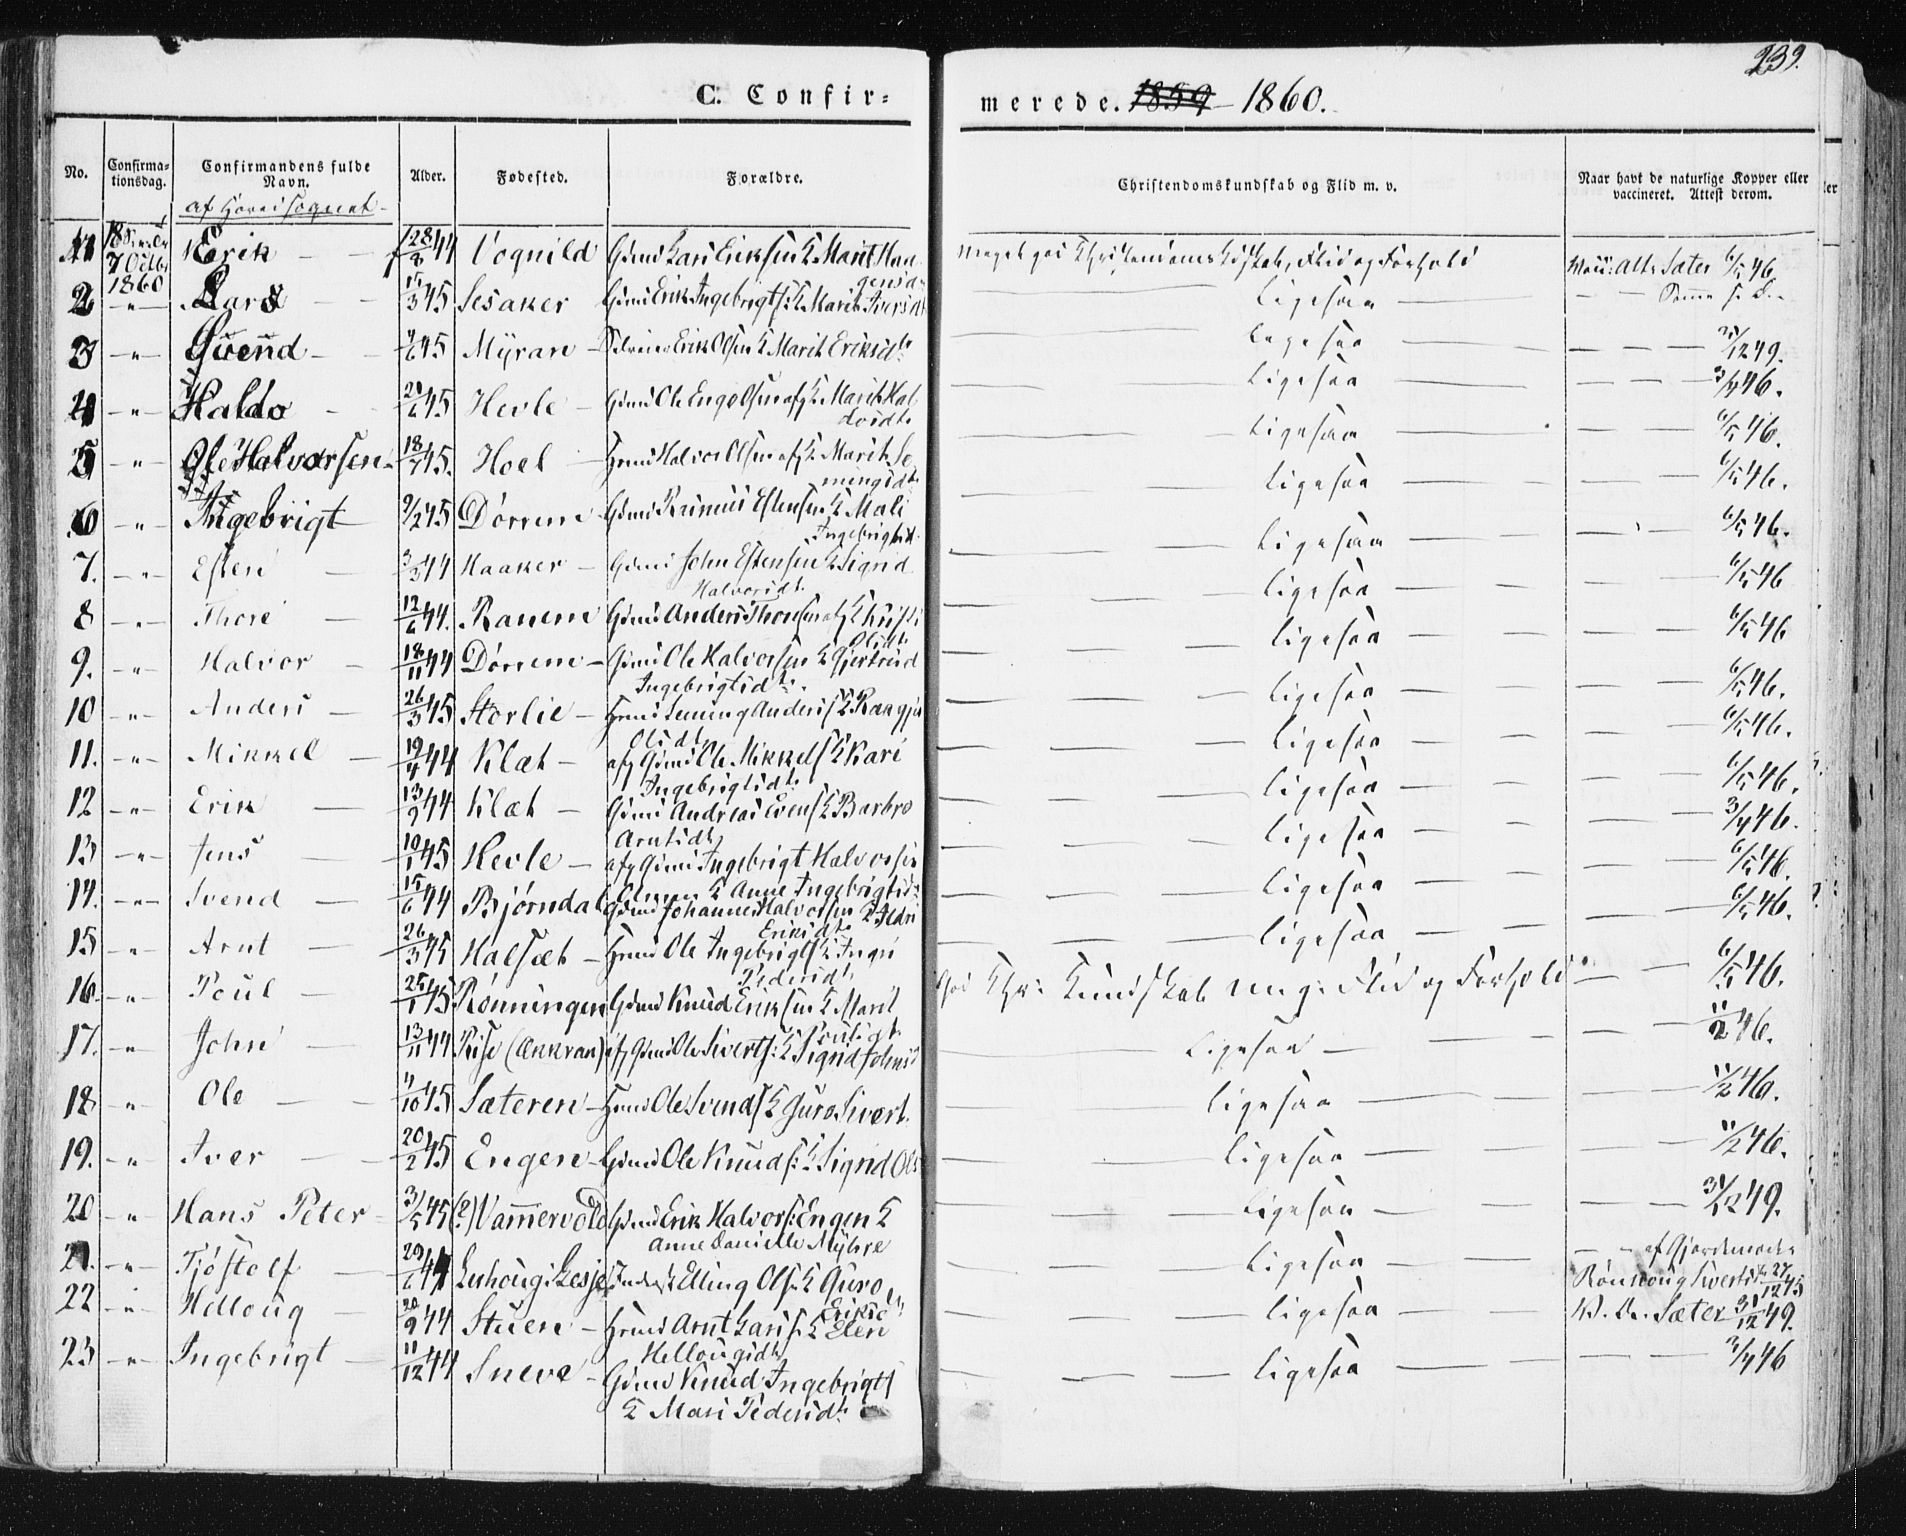 239.
C. Confirmerede. 1859 - 1860.
No. Confirmationsdag. Confirmandens fulde Navn. Alder. Fødested. Forældre. Christendomskundskab og Flid m. v. Naar havt de naturlige Kopper eller vaccineret. Attest derom.
af Hovedsognet
1 7 Octbr 1860 Erik f 28/8 44 Vognild Gdmd Lars Eriksen & Marit Haagensd. Meget god Christendomskdskab, Flid og Forhold Sæter 6/5 46.
2 - " - Lars 15/3 45 Sesaker Gdmd Erik Ingebrigts: & Marit Iversdt Ligesaa
3 - " - Svend 45 Myran Erik Olsen & Marit Eriksdt. Ligesaa 31/12 49.
4 - " - Haldo 21/6 45 Hevle Gdmd Ole Engelsen & Marit Haldosdt. Ligesaa 3/4 46.
5 - " - Ole Halvorsen 18/7 45. Hoel Hmd Halvor Olsen & Marit Semingsdt. Ligesaa 6/5 46.
6 - " - Ingebrigt 9/2 45 Dørrem Gdmd Rasmus Estensen & Mali Ingebrigtsd. Ligesaa 6/5 46.
7. - " - Esten 3/3 44 Haaker Gdmd John Estensen & Sigrid Halvorsdt. Ligesaa 6/5 46.
8 - " - Thore 12/6 44. Ranem Gdmd Anders Thoresen & Kristi Olsdt. Ligesaa 6/5 46
9. - " - Halvor 18/11 44 Dørrem Gdmd Ole Halvorsen & Gjertrud Ingebrigtsdt. Ligesaa 6/5 46
10 - " - Anders 26/3 45 Storlie Hmd Seming Anders & Olsdt. Ligesaa 6/5 46.
11. - " - Mikkel 19/4 44 Klæt Gdmd Ole Mikkels & Kari Ingebrigtsdt. Ligesaa 6/5 46.
12 - " - Erik 13/9 44 Klæt Gdmd Andreas Evens & Barbro Arntsdt. Ligesaa 6/5 46.
13 - " - Jens 10/1 45 Hevle Gdmd Ingebrigt Halvorsen & Anne Ingebrigtsd. Ligesaa 3/4 46.
14. - " - Svend 15/6 44 Bjørndal Gdmd Johannes Halvorsen & Eriksdt. Ligesaa 6/5 46.
15 - " - Arnt 26/3 45 Halsæt Hmd Ole Ingebrigts & Ingri Pedersdt. Ligesaa 6/5 46.
16. - " - Poul 25/1 45 Rønningen Gdmd Knud Eriksen & Marit Poulsdt. God Chr: Kundskab meg: Flid og Forhold 6/5 46.
17. - " - John 13/11 44 Rise af Gdmd Ole Siverts: & Sigrid Johnsd Ligesaa 11/2 46.
18 - " - Ole 11/10 45 Sæteren Hmd Ole Svends & Guro Sivert. Ligesaa 11/2 46.
19. - " - Iver 20/2 45 Engen Gdmd Ole Knuds: & Sigrid Ols Ligesaa 11/2 46.
20 - " - Hans Peter 3/5 45 (?) Vammervold Gdmd Erik Halvors: Engen & Anne Danielle Myhre Ligesaa 31/12 49.
21. - " - Tjøstolf 29/6 44 Lesje Inderst Elling Ols: & Guro Eriksd Ligesaa af Gjordemoder Rønnoug Sivertsdt. 27/12 45
22 - " - Helloug 20/9 44 Stuen Hmd Arnt Lars & Elen Hellougsdt. Ligesaa Sæter 31/12 49.
23 - " - Ingebrigt 11/12 44 Sneve Gdmd Knud Ingebrigts & Mari Pedersdt. Ligesaa 3/4 46